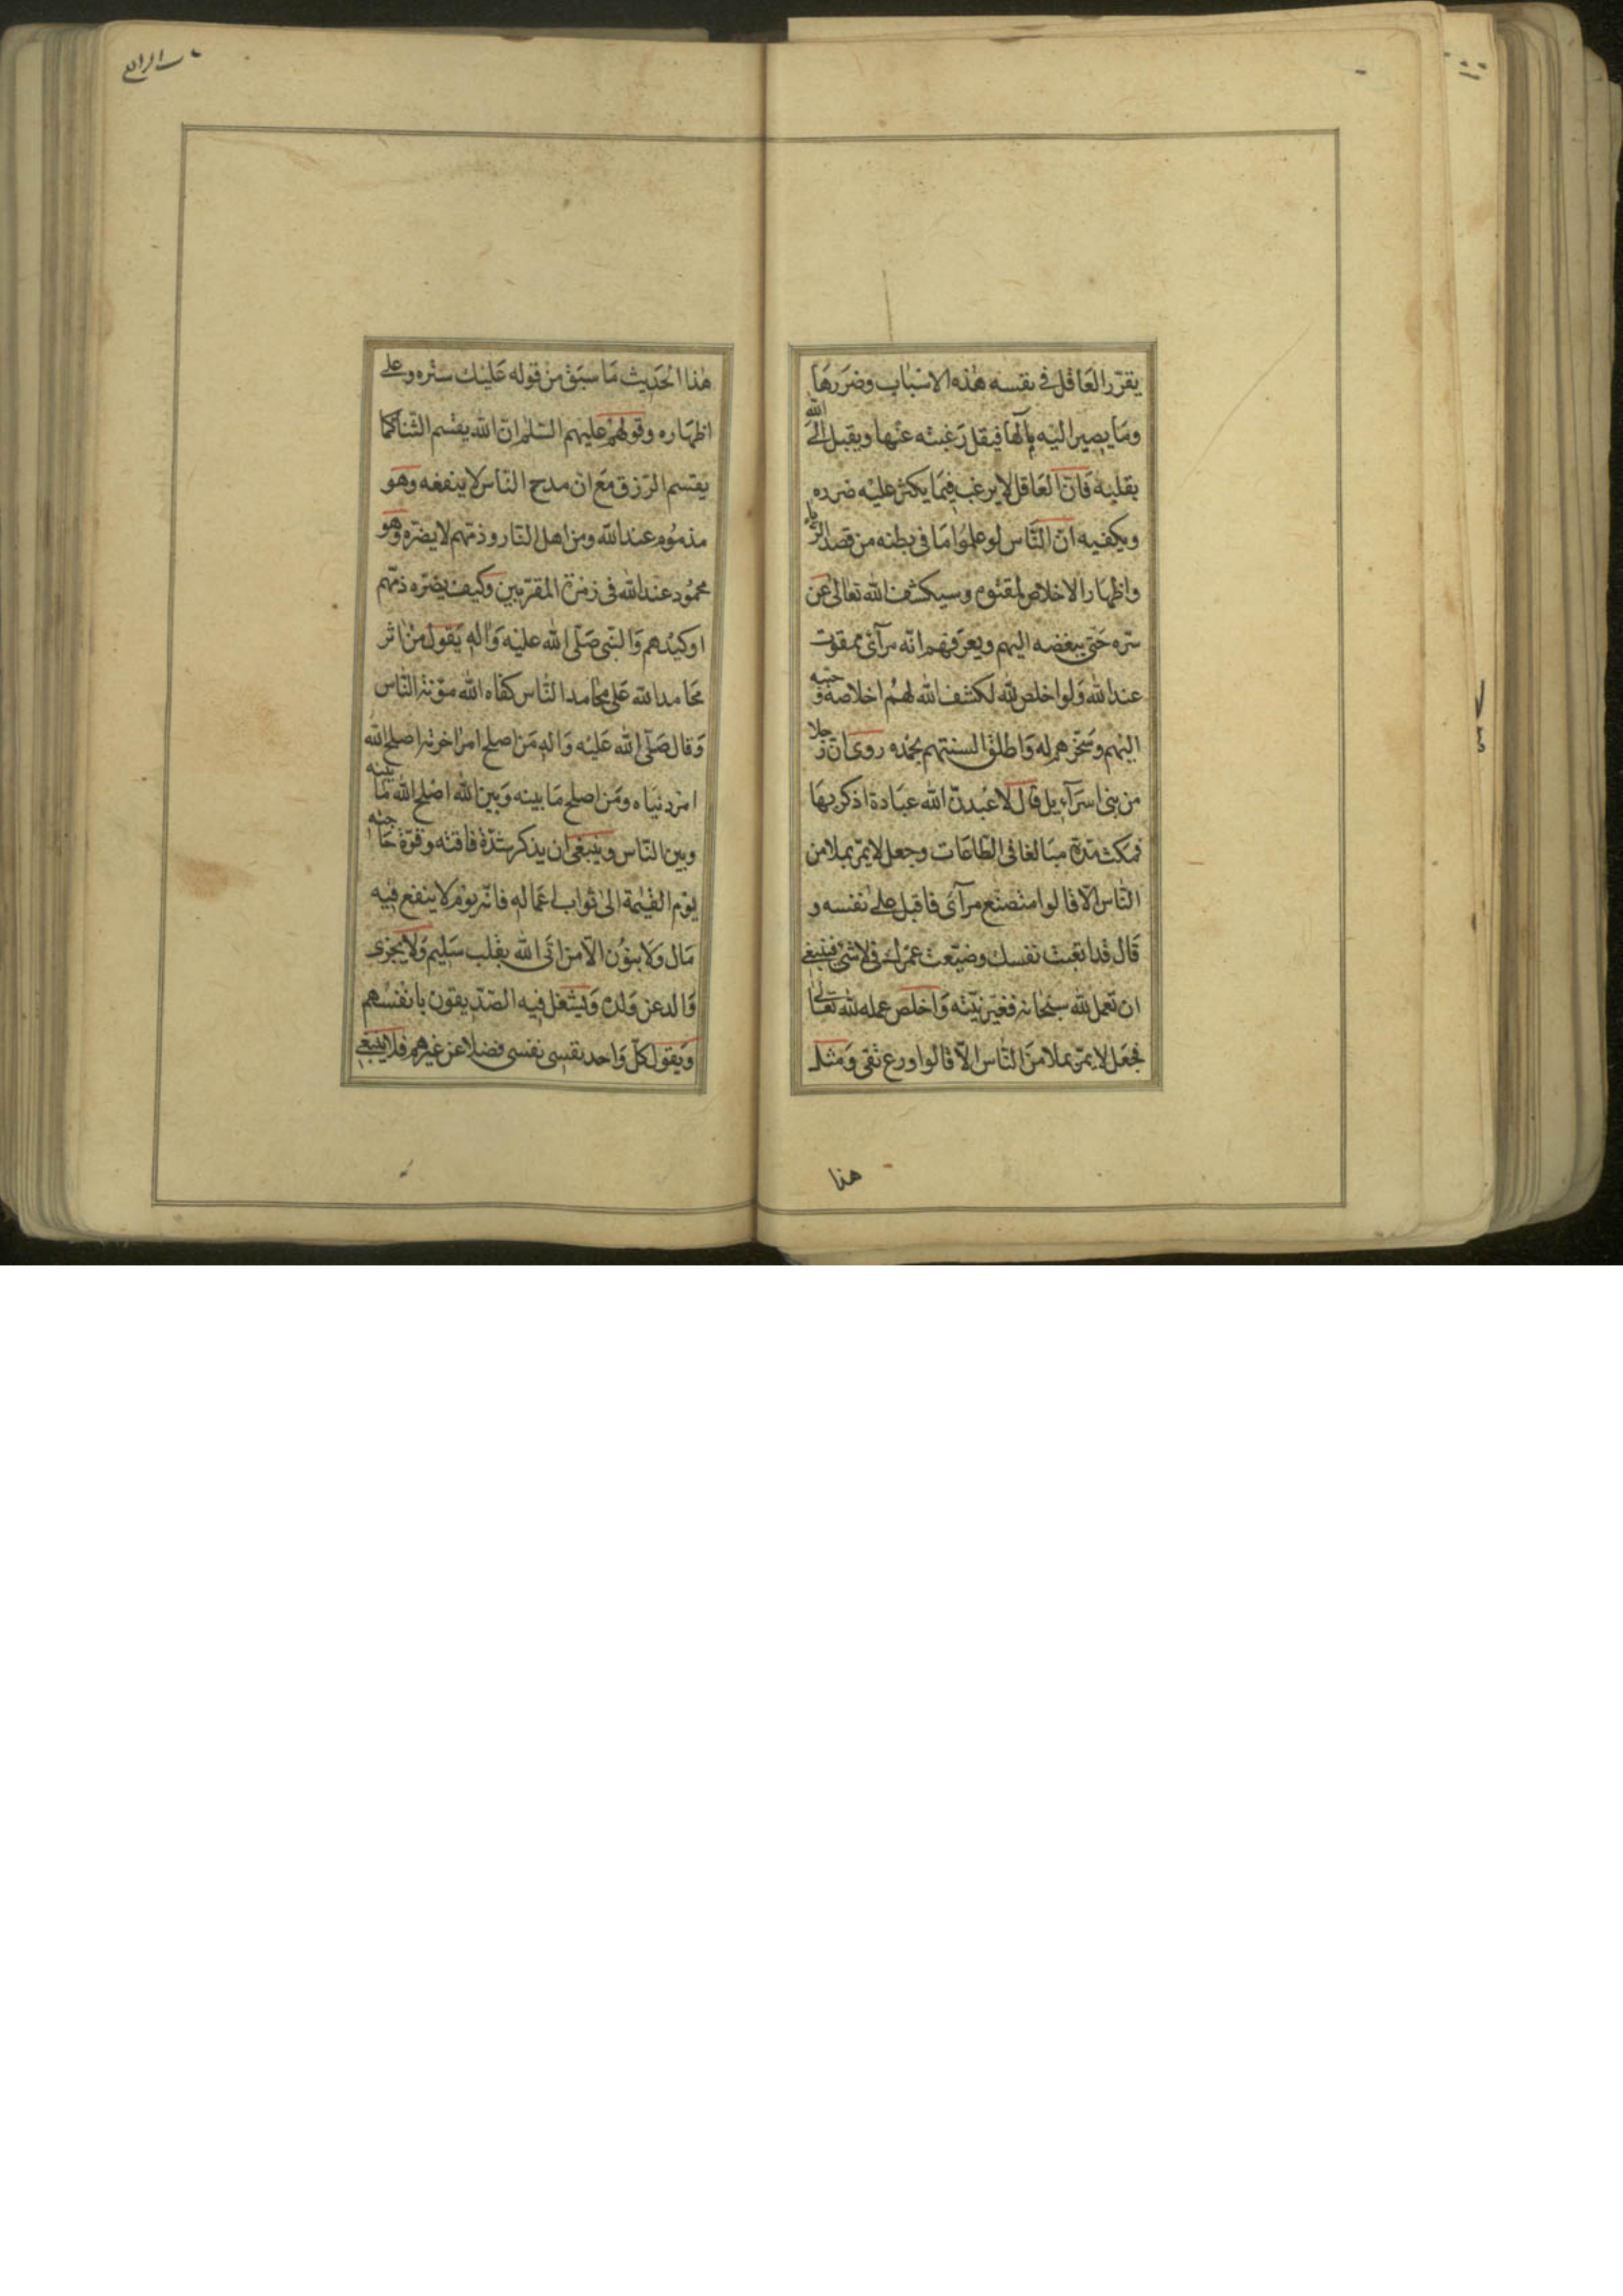 يقرّر العَاقل في نفسه هٰذه الاسْبٰاب وضَرَرهَا
ومَا يصير اليْه مٰآلهَا فيقل رَغبته عنْها ويقبل الىَ اللّه
بقلبه فَانّ العَاقل لا يرغب فيمَا يكثر عليْه ضرره
ويكفيه انّ النَّاس لو علموُا مَا في بطنه من قصد الرّياء
واظهَار الاخلاص لمقتوه وسيكشف اللّه تعَالىٰ عَن
سرّه حَتّى يبغضه اليهم ويعرّفهم انّه مرآئ ممقوت
عند اللّه وَلو اخلص للّه لكشف اللّه لهمُ اخلاصهُ وَ حبّبه
اليْهم وسَخّرهم له وَاطلق السنتهم بحمْده روى انّ رَجلا
من بنى اسرَآءيل قال لاعْبدنّ اللّه عبَادة اذكر بهَا
فمكث مدّة مبَالغا فى الطّاعَات وجعل لا يمرّ بملا من
النّاس الاّ قالوا متصنّع مرآئ فاقبل علىٰ نفسه و
قَال قد اتعبت نفسك وضيّعت عمْرك فى لا شئ فينبغي
ان تعمل للّه سبحَانه فغيّر نيّته وَاخلص عمله للّه تعَالىٰ
فجعَل لا يمرّ بملا منَ النّاس الاّ قالوا ورع تقى وَمثل
هذا
هٰذا الحَديث مَا سبَق منْ قوله عَليْك ستْره وعلىّ
اظهَاره وقولهمْ عليهم السّلم انّ اللّه يقسم الثّنا كمَا
يقسم الرّزق مَع انّ مدح النّاس لا ينفعه وَهو
مذموُم عند اللّه ومن اهل النّار وذمّهم لا يضرّه وهو
محموُد عند اللّه فى زمْرة المقرّبين وكيف يضرّه ذمّهم
اوكيْدهم وَالنّبى صَلّى اللّه عليْه وَاٰله يَقول من اٰثر
محَامد اللّه عَلى محَامد النّاس كفاه اللّه مؤنة النّاس
وَقال صَلّى اللّه عَليْه وَاله مَن اصلح امرْ اخرته اصلح اللّه
امرْ دنيَاه ومَن اصلح مَا بينه وَبين اللّه اصْلح اللّه مَا بينه
وبين النّاس وينبغى ان يذكر شدّة فاقته وقوّة حَاجته
يوْم القيٰمة الى ثواب اعمَاله فانّه يوْم لا ينفع فيه
مَال وَلا بنوُن الاّ من اتَى اللّه بقلب سَليم وَلا يجزى
وَالد عن وَلده وَيشتغل فيه الصّدّيقون بانفسُهم
وَيقول كلّ وَاحد نفسى نفسى فضلا عن غيرهم فلا ينبغي